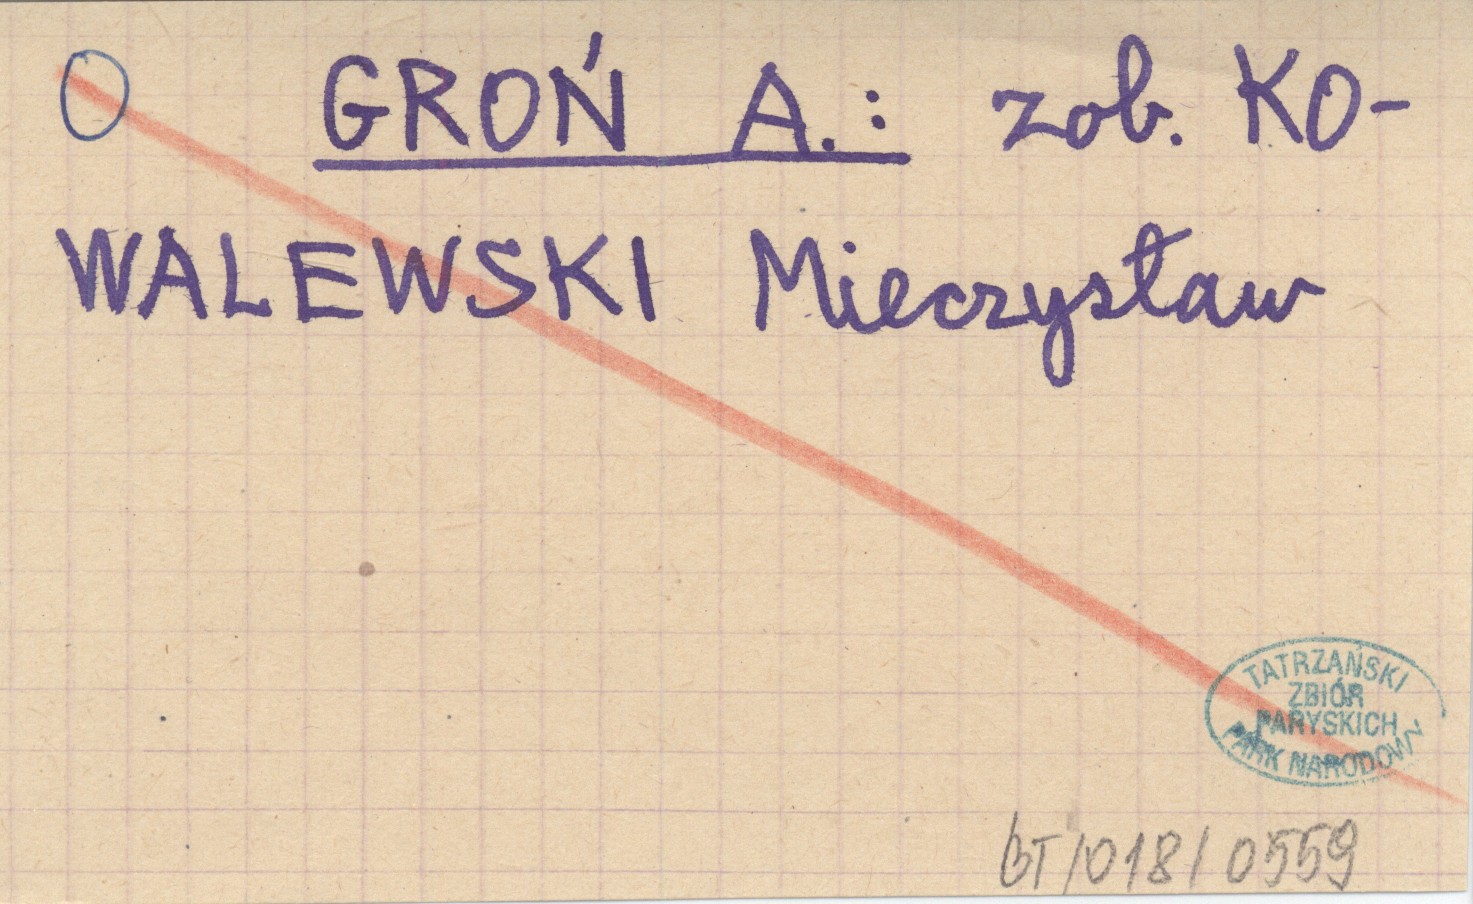 GROŃ A.: zob. KO-
WALEWSKI Mieczysław
TATRZAŃSKI
ZBIÓR
PARYSKICH
PARK NARODOWY
BT/018/0559